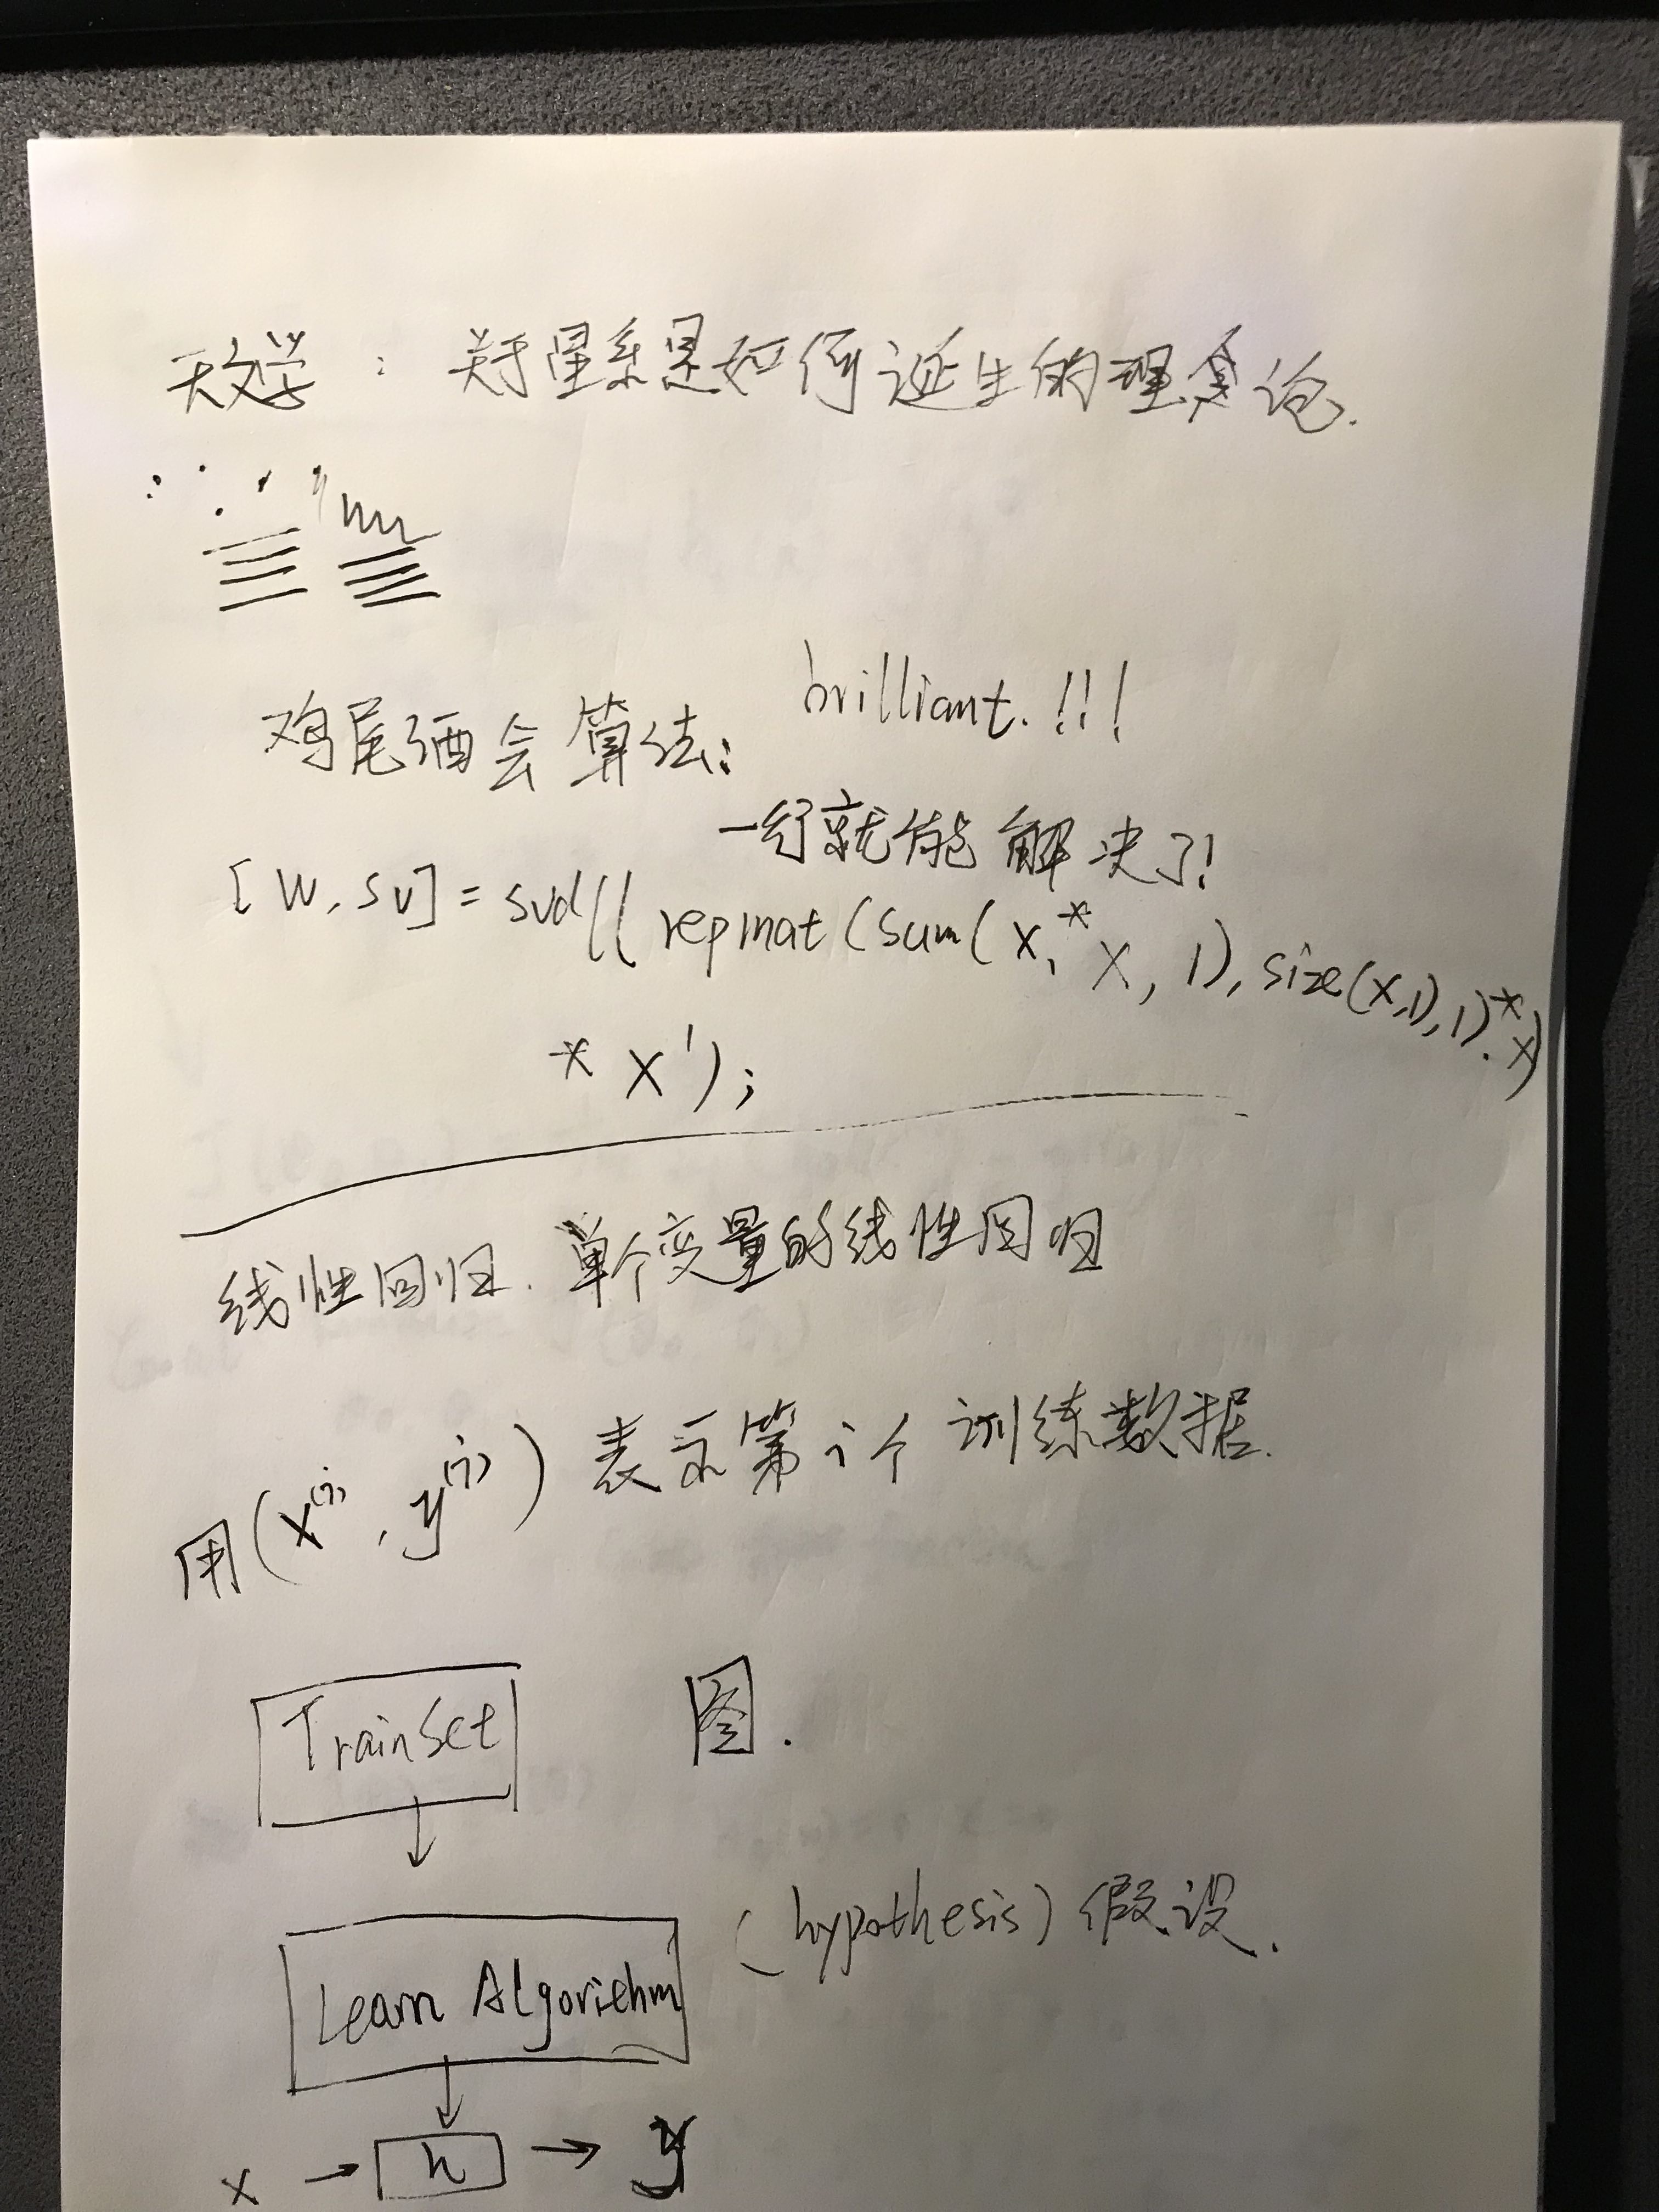 天文学：关于星系是如何诞生的理论.
鸡尾酒会算法: brilliant.!!!
一行就能解决了!
[W, sv] = svd((repmat(sum(x.*x, 1), size(x,1), 1).*x)
*x');
线性回归. 单个变量的线性回归
用(x⁽ⁱ⁾, y⁽ⁱ⁾) 表示第i个训练数据.
TrainSet 图.
(hypothesis) 假设.
Learn Algorithm
x → h → y